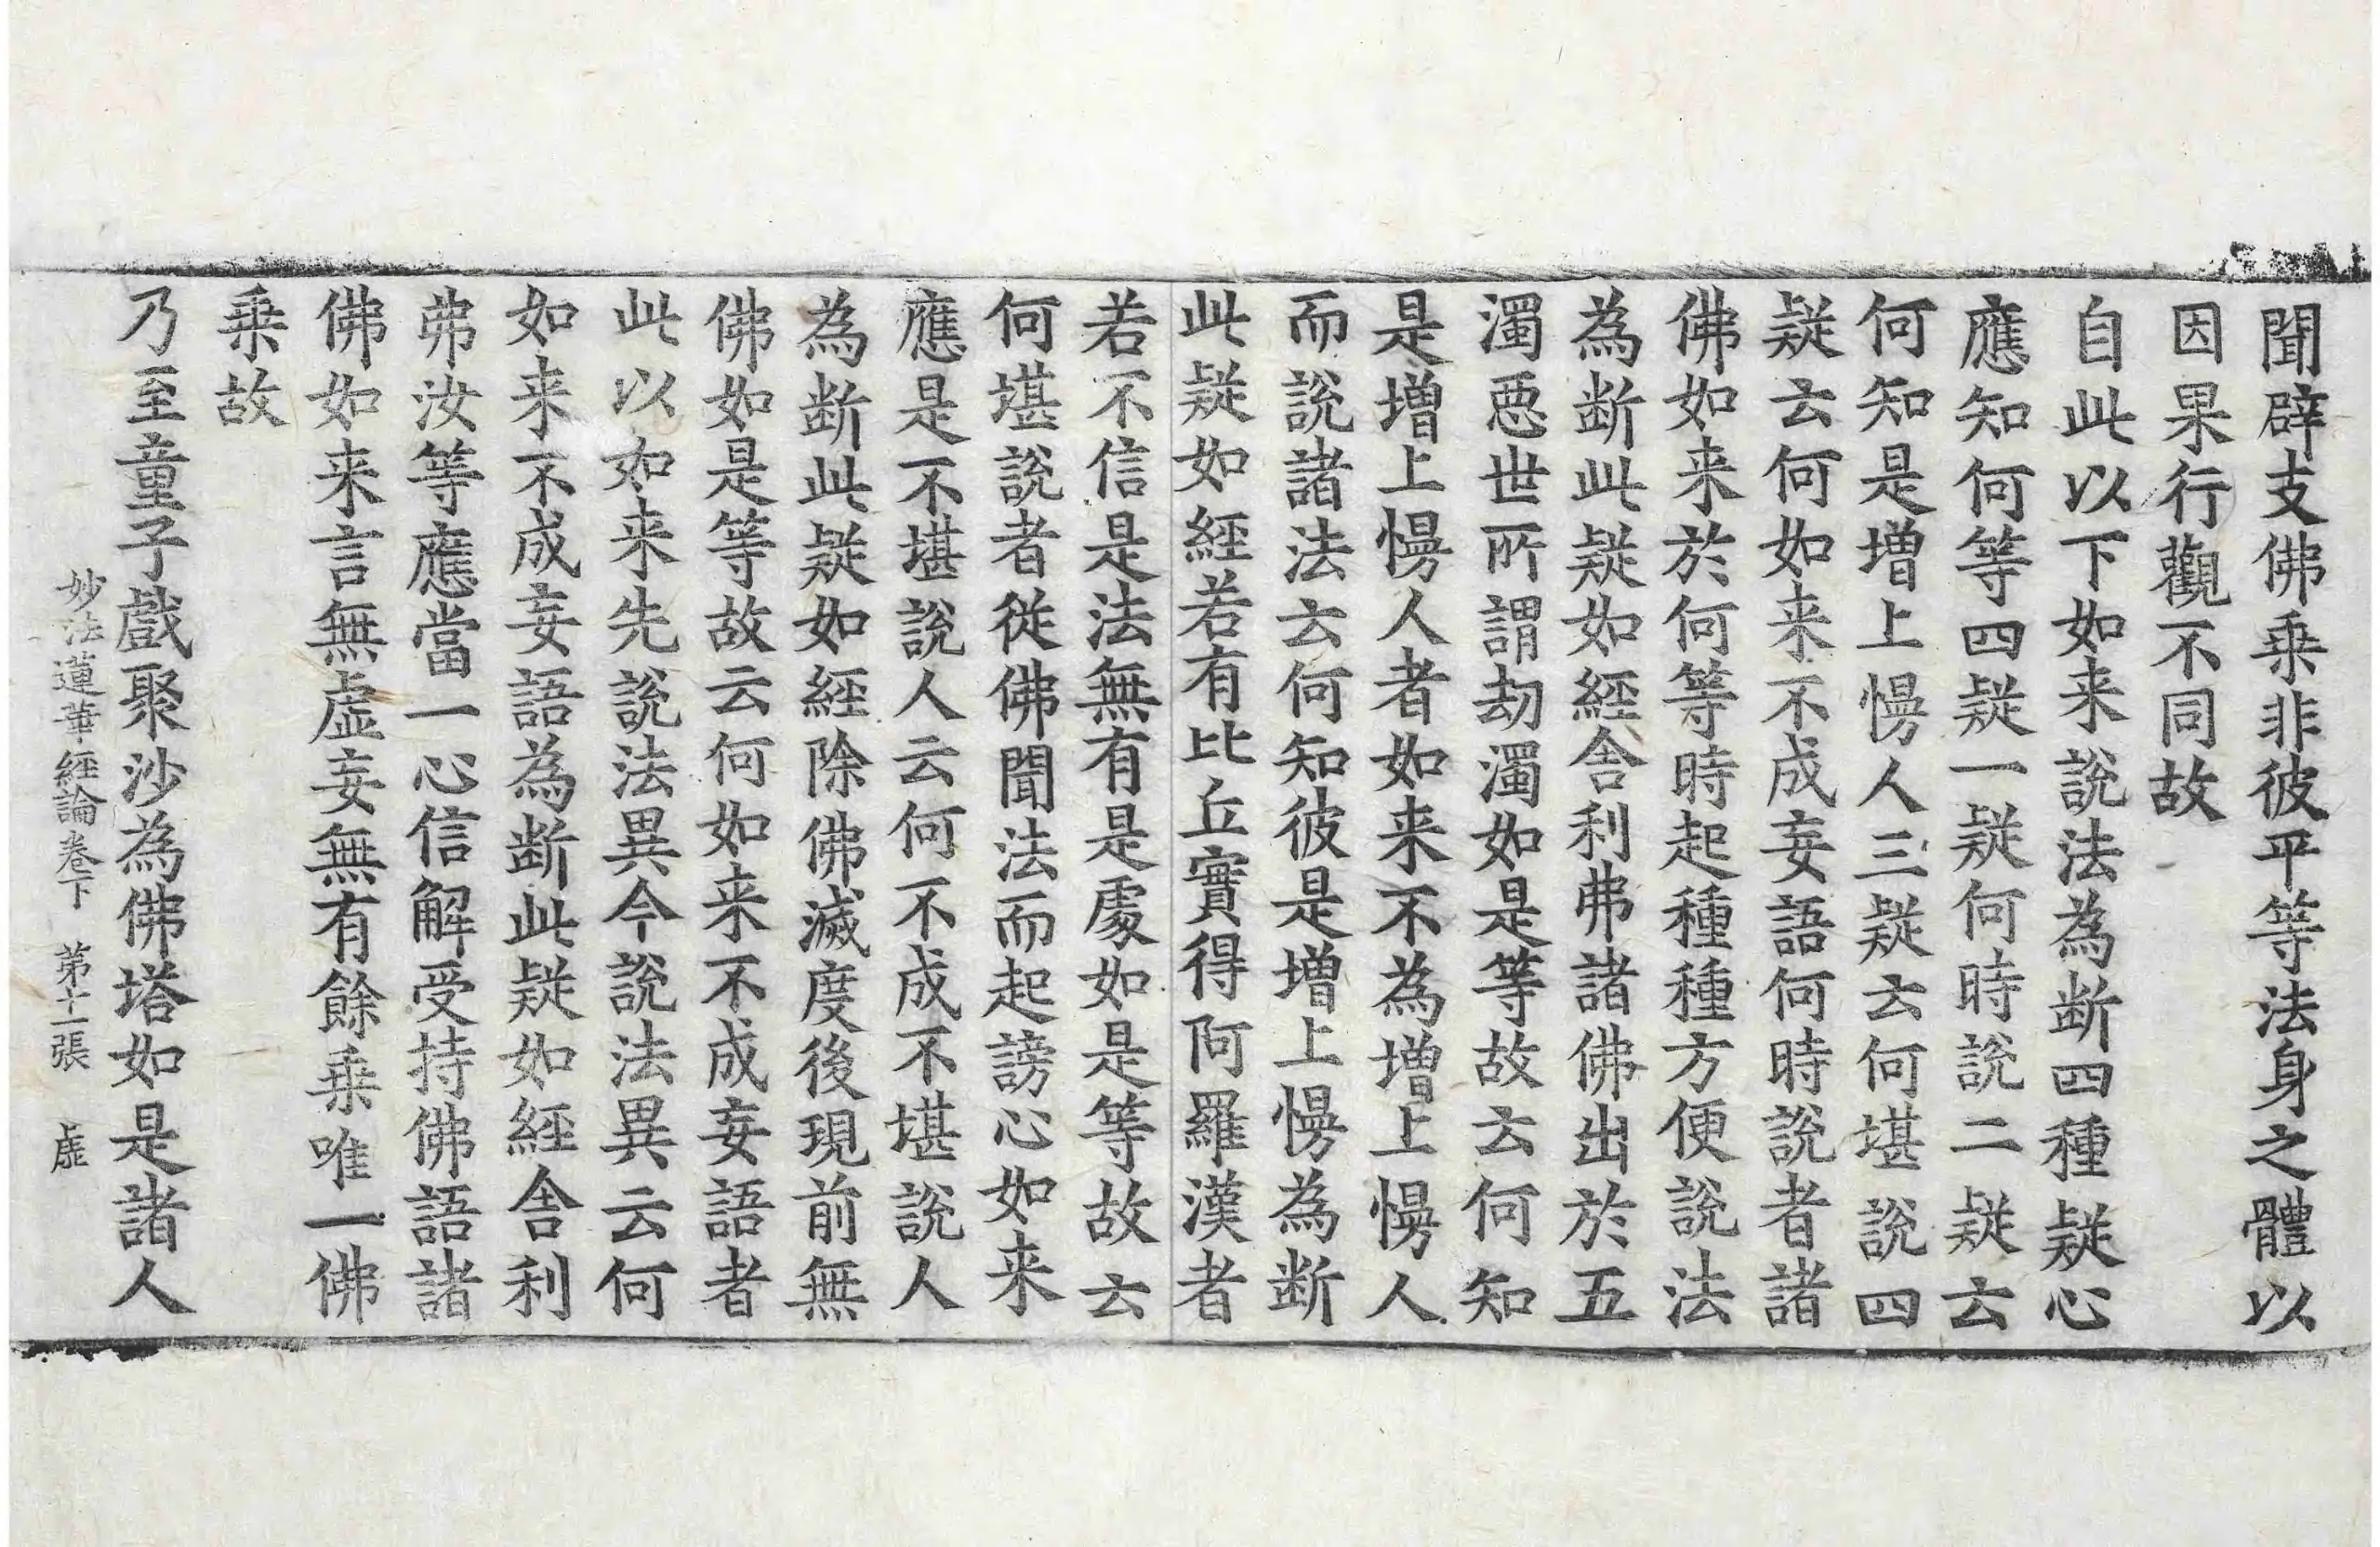 聞辟支佛乗非彼平等法身之體以
因果行觀不同故
自此以下如来說法為断四種疑心
應知何等四疑一疑何時說二疑云
何知是增上慢人三疑云何堪說四
疑云何如来不成妄語何時說者諸
佛如来於何等時起種種方便說法
為断此疑如經舍利弗諸佛出於五
濁惡世所謂劫濁如是等故云何知
是增上慢人者如来不為增上慢人
而說諸法云何知彼是增上慢為断
此疑如經若有比丘實得阿羅漢者
若不信是法無有是處如是等故云
何堪說者從佛聞法而起謗心如来
應是不堪說人云何不成不堪說人
為断此疑如經除佛滅度後現前無
佛如是等故云何如来不成妄語者
此以如来先說法異今說法異云何
如来不成妄語為断此疑如經舍利
弗汝等應當一心信解受持佛語諸
佛如来言無虛妄無有餘乗唯一佛
乗故
乃至童子戲聚沙為佛塔如是諸人
妙法蓮華經論卷下　第十一張　虛